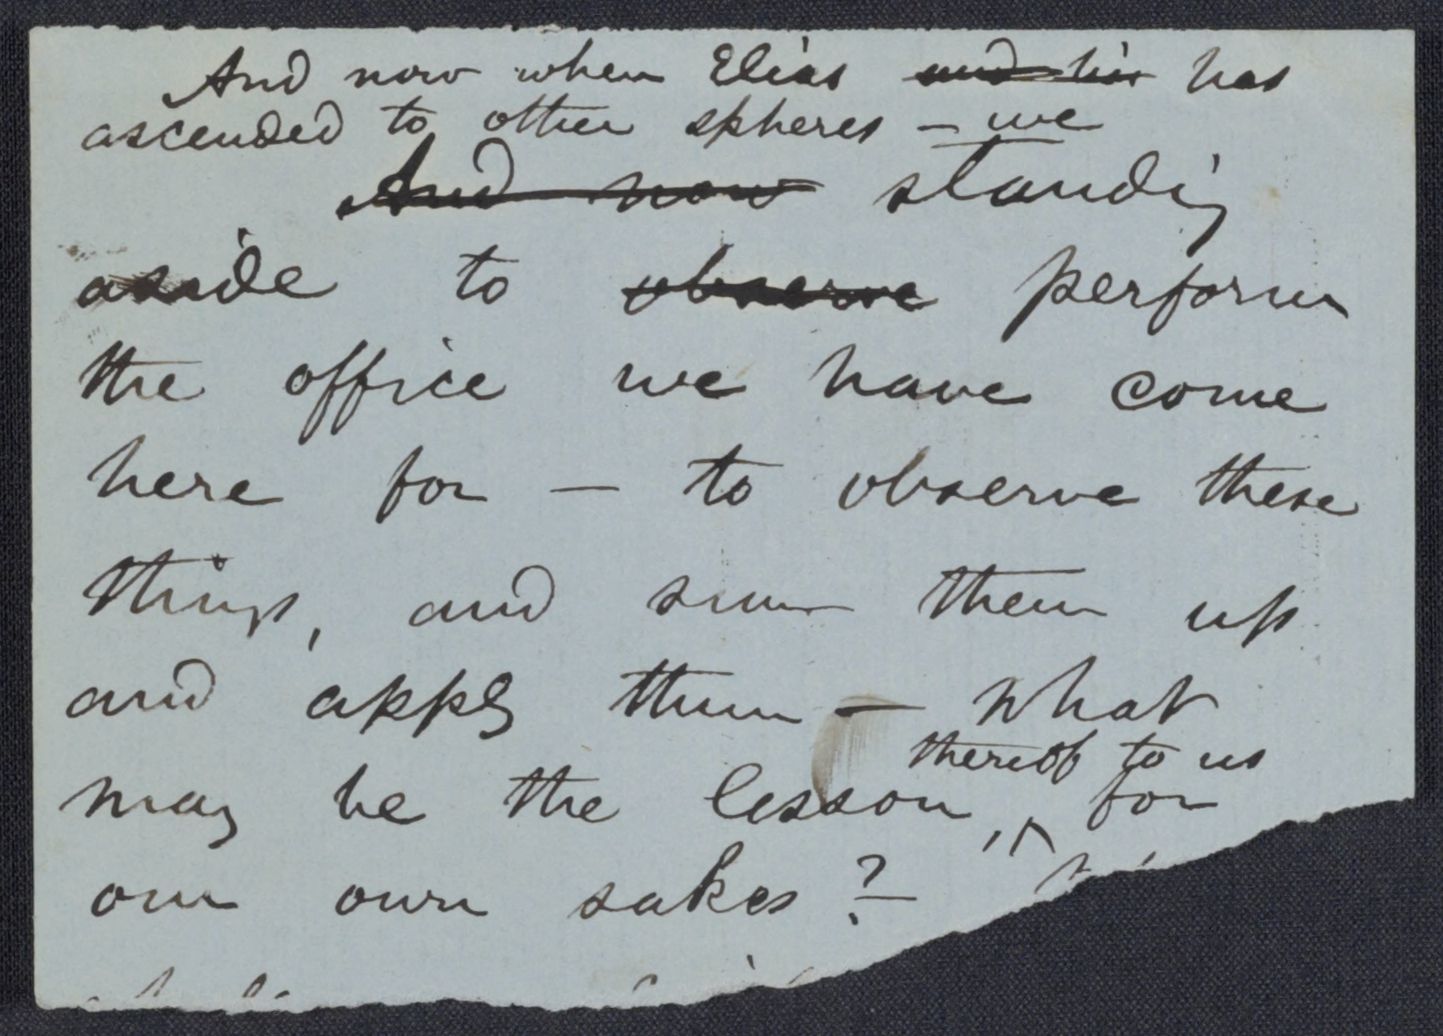 And now when Elias and his has
ascended to other spheres – we
And now standing
aside to observe perform
the office we have come
here for – to observe these
things, and sum them up
and apply them – What
thereof to us
may be the lesson, ^ for
our own sakes? –